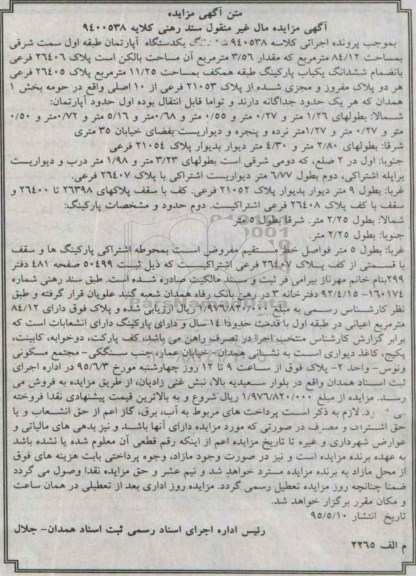 متن آگهی مزایده
آگهی مزایده مال غیر منقول سند رهنی کلاسه ۹۴۰۰۵۳۸
بموجب پرونده اجرائی کلاسه ۹۴۰۰۵۳۸ ششدانگ یکدستگاه آپارتمان طبقه اول سمت شرقی
بمساحت ۸۴/۱۲ مترمربع که مقدار ۳/۵۶ مترمربع آن مساحت بالکن است پلاک ۲۶۴۰۶ فرعی
بانضمام ششدانگ یکباب پارکینگ طبقه همکف بمساحت ۱۱/۲۵ مترمربع پلاک ۲۶۴۰۵ فرعی
هر دو پلاک مفروز و مجزی شده از پلاک ۲۱۰۵۳ فرعی از ۱۰ اصلی واقع در حومه بخش ۱
همدان که هر یک حدود جداگانه دارند و تواما قابل انتقال بوده اول حدود آپارتمان:
شمالا: بطولهای ۱/۲۶ متر و ۰/۲۷ متر و ۰/۵۵ متر و ۰/۶۸ متر و ۵/۱۶ متر و ۰/۷۲ متر و ۰/۵۰
متر و ۰/۲۷ متر و ۱/۲۷ متر نرده و پنجره و دیواریست بفضای خیابان ۳۵ متری
شرقا: بطولهای ۲/۸۰ متر و ۴/۳۰ متر دیوار بدیوار پلاک ۲۱۰۵۴ فرعی
جنوبا: اول در ۲ ضلع، که دومی شرقی است بطولهای ۳/۲۳ متر و ۱/۹۸ متر درب و دیواریست
براپله اشتراکی، دوم بطول ۶/۷۷ متر دیواریست اشتراکی با پلاک ۲۶۴۰۷ فرعی.
غربا: بطول ۹ متر دیوار بدیوار پلاک ۲۱۰۵۲ فرعی. کف با سقف پلاکهای ۲۶۳۹۸ تا ۲۶۴۰۰ و
سقف با کف پلاک ۲۶۴۰۸ فرعی اشتراکیست. دوم حدود و مشخصات پارکینگ:
شمالا: بطول ۲/۲۵ متر. شرقا بطول ۵ متر
جنوبا: بطول ۲/۲۵ متر.
غربا: بطول ۵ متر فواصل خط مستقیم مفروض است بمحوطه اشتراکی پارکینگ ها و سقف
با قسمتی از کف پلاک ۲۶۴۰۷ فرعی اشتراکیست که ذیل ثبت ۵۰۴۹۹ صفحه ۴۸۱ دفتر
۲۹۸ بنام خانم مهرناز بیرامی فر ثبت و سند مالکیت صادره شده است. طبق سند رهنی شماره
۱۶۰۱۷۴-۹۲/۴/۱۵ دفترخانه ۳ در رهن بانک رفاه همدان شعبه گنبد علویان قرار گرفته و طبق
نظر کارشناس رسمی به مبلغ ۱/۹۷۶/۸۲۰/۰۰۰ ریال ارزیابی شده و پلاک فوق دارای ۸۴/۱۲
مترمربع اعیانی در طبقه اول با قدمت حدودا ۱۴ سال و دارای پارکینگ دارای انشعابات است که
برابر گزارش کارشناس منتخب اجرا در تصرف راهن می باشد، کف پارکت، دوخوابه، کابینت،
پکیج، کاغذ دیواری است به نشانی همدان- خیابان عمار، جنب سنگکی- مجتمع مسکونی
ونوس- واحد ۲- پلاک فوق از ساعت ۹ تا ۱۲ روز چهارشنبه مورخ ۹۵/۶/۳ در اداره اجرای
ثبت اسناد همدان واقع در بلوار سعیدیه بالا، نبش غنی زادیان، از طریق مزایده به فروش می
رسد. مزایده از مبلغ ۱/۹۷۶/۸۲۰/۰۰۰ ریال شروع و به بالاترین قیمت پیشنهادی نقدا فروخته
می شود. لازم به ذکر است پرداخت های مربوط به آب، برق، گاز اعم از حق انشعاب و یا
حق اشتراک و مصرف در صورتی که مورد مزایده دارای آنها باشد و نیز بدهی های مالیاتی و
عوارض شهرداری و غیره تا تاریخ مزایده اعم از اینکه رقم قطعی آن معلوم شده یا نشده باشد
به عهده برنده مزایده است و نیز در صورت وجود مازاد، وجوه پرداختی بابت هزینه های فوق
از محل مازاد به برنده مزایده مسترد خواهد شد و نیم عشر و حق مزایده نقدا وصول می گردد
ضمنا چنانچه روز مزایده تعطیل رسمی گردد. مزایده روز اداری بعد از تعطیلی در همان ساعت
و مکان مقرر برگزار خواهد شد.
تاریخ انتشار ۹۵/۵/۱۰
رئیس اداره اجرای اسناد رسمی ثبت اسناد همدان- جلال
م الف ۲۲۶۵